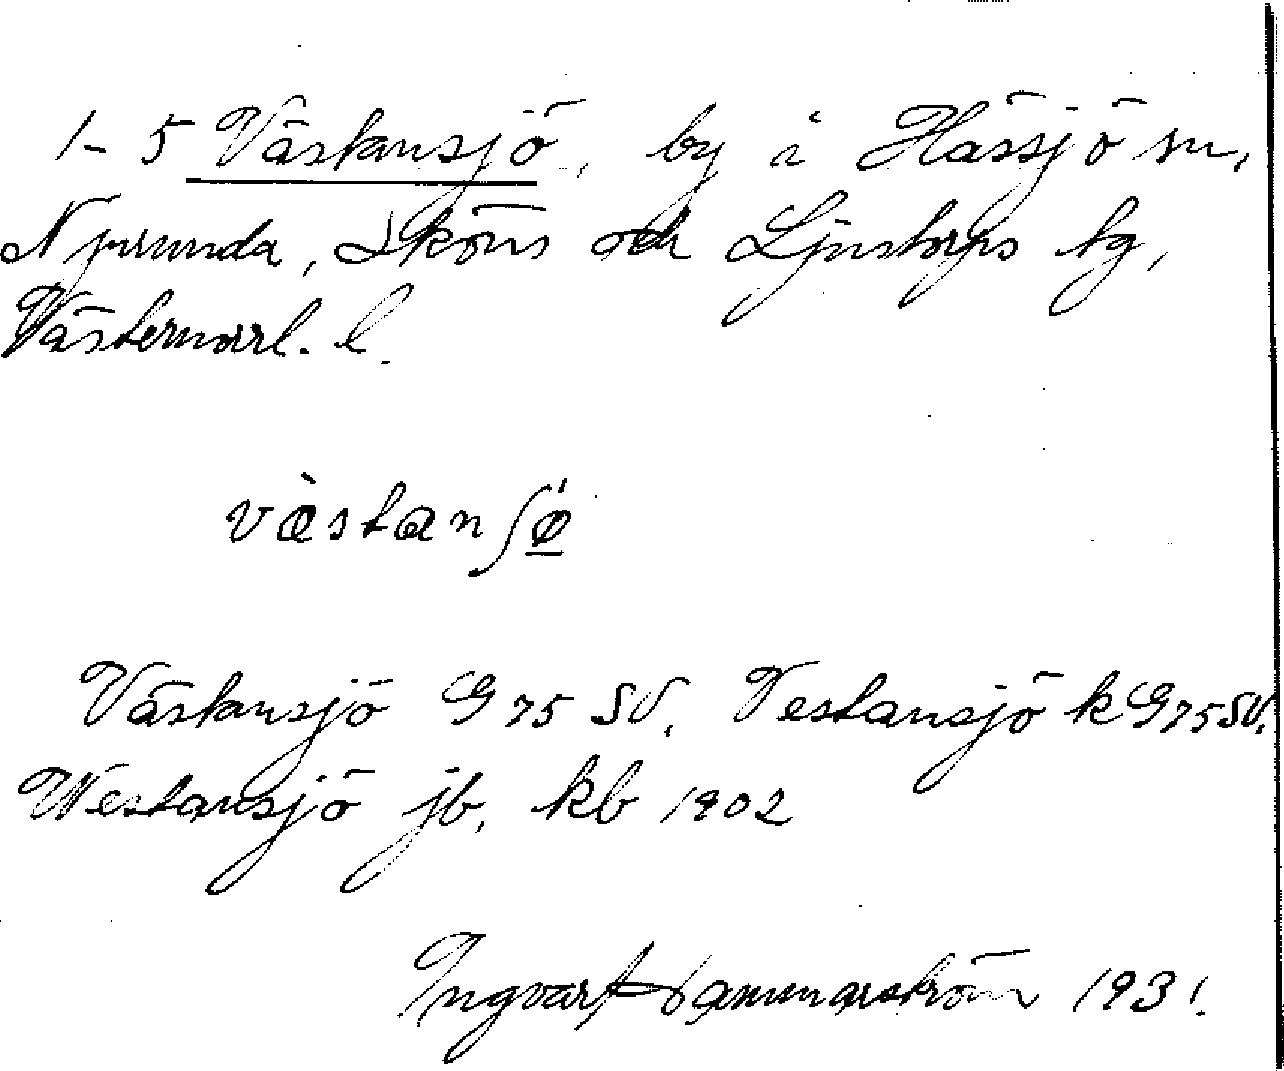 1-5 Västansjö, by i Hässjö sn,
Njurunda, Sköns och Ljustorps tg,
Västernorrl. l.
västanʃø
Västansjö G 75 SV. Vestansjö k G 75 SV.
Westansjö jb, kb 1902
Ingvar Hammarström 1931.